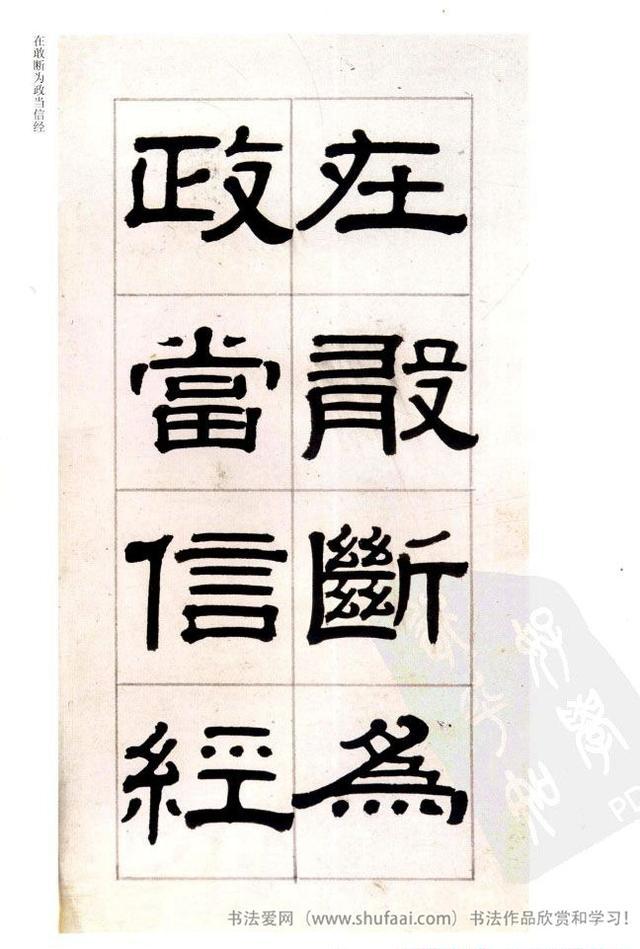 在敢断为政当信经
在敢斷為
政當信經
书法爱网（www.shufaai.com）书法作品欣赏和学习！